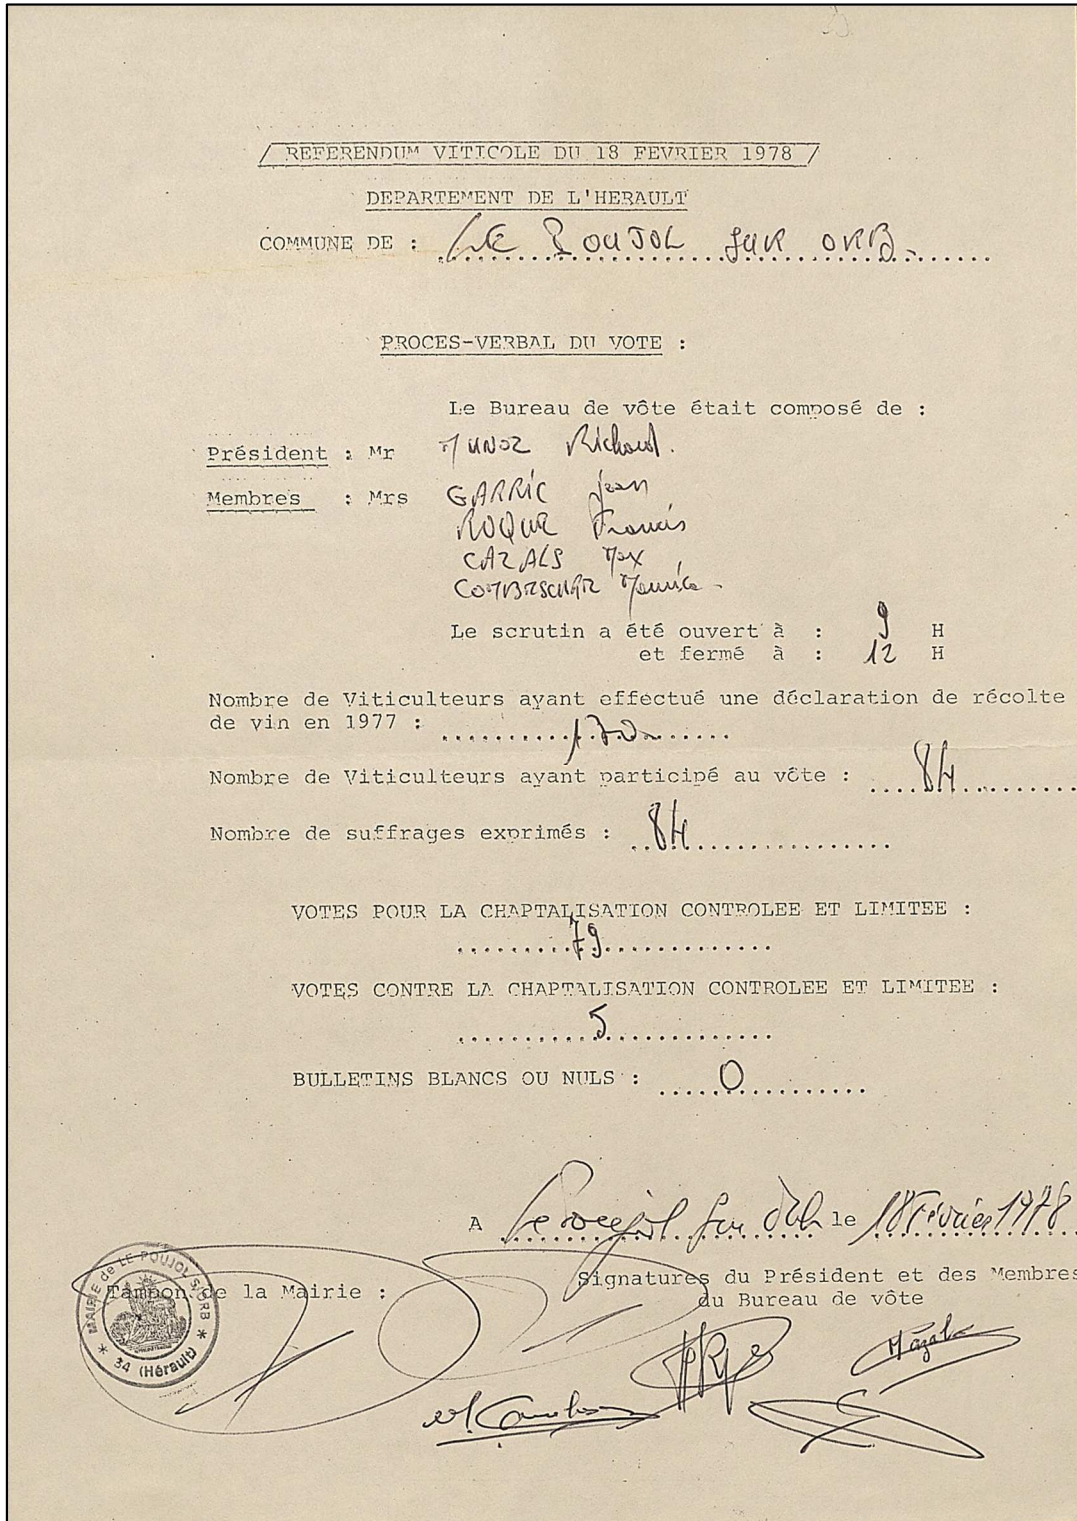 REFERENDUM VITICOLE DU 18 FEVRIER 1978
DEPARTEMENT DE L'HERAULT
COMMUNE DE : LE POUJOL SUR ORB
PROCES-VERBAL DU VOTE :
Le Bureau de vôte était composé de :
Président : Mr MUNOZ Richard.
Membres : Mrs GARRIC Jean
ROQUE Francis
CAZALS Max
COMBESCURE Maurice
Le scrutin a été ouvert à : 9 H
et fermé à : 12 H
Nombre de Viticulteurs ayant effectué une déclaration de récolte
de vin en 1977 :
Nombre de Viticulteurs ayant participé au vôte : 84
Nombre de suffrages exprimés : 84
VOTES POUR LA CHAPTALISATION CONTROLEE ET LIMITEE :
79
VOTES CONTRE LA CHAPTALISATION CONTROLEE ET LIMITEE :
5
BULLETINS BLANCS OU NULS : 0
A Le Poujol sur Orb le 18 Février 1978
Tampon de la Mairie :
Signatures du Président et des Membres
du Bureau de vôte
MAIRIE de LE POUJOL S/ORB
* 34 (Hérault) *